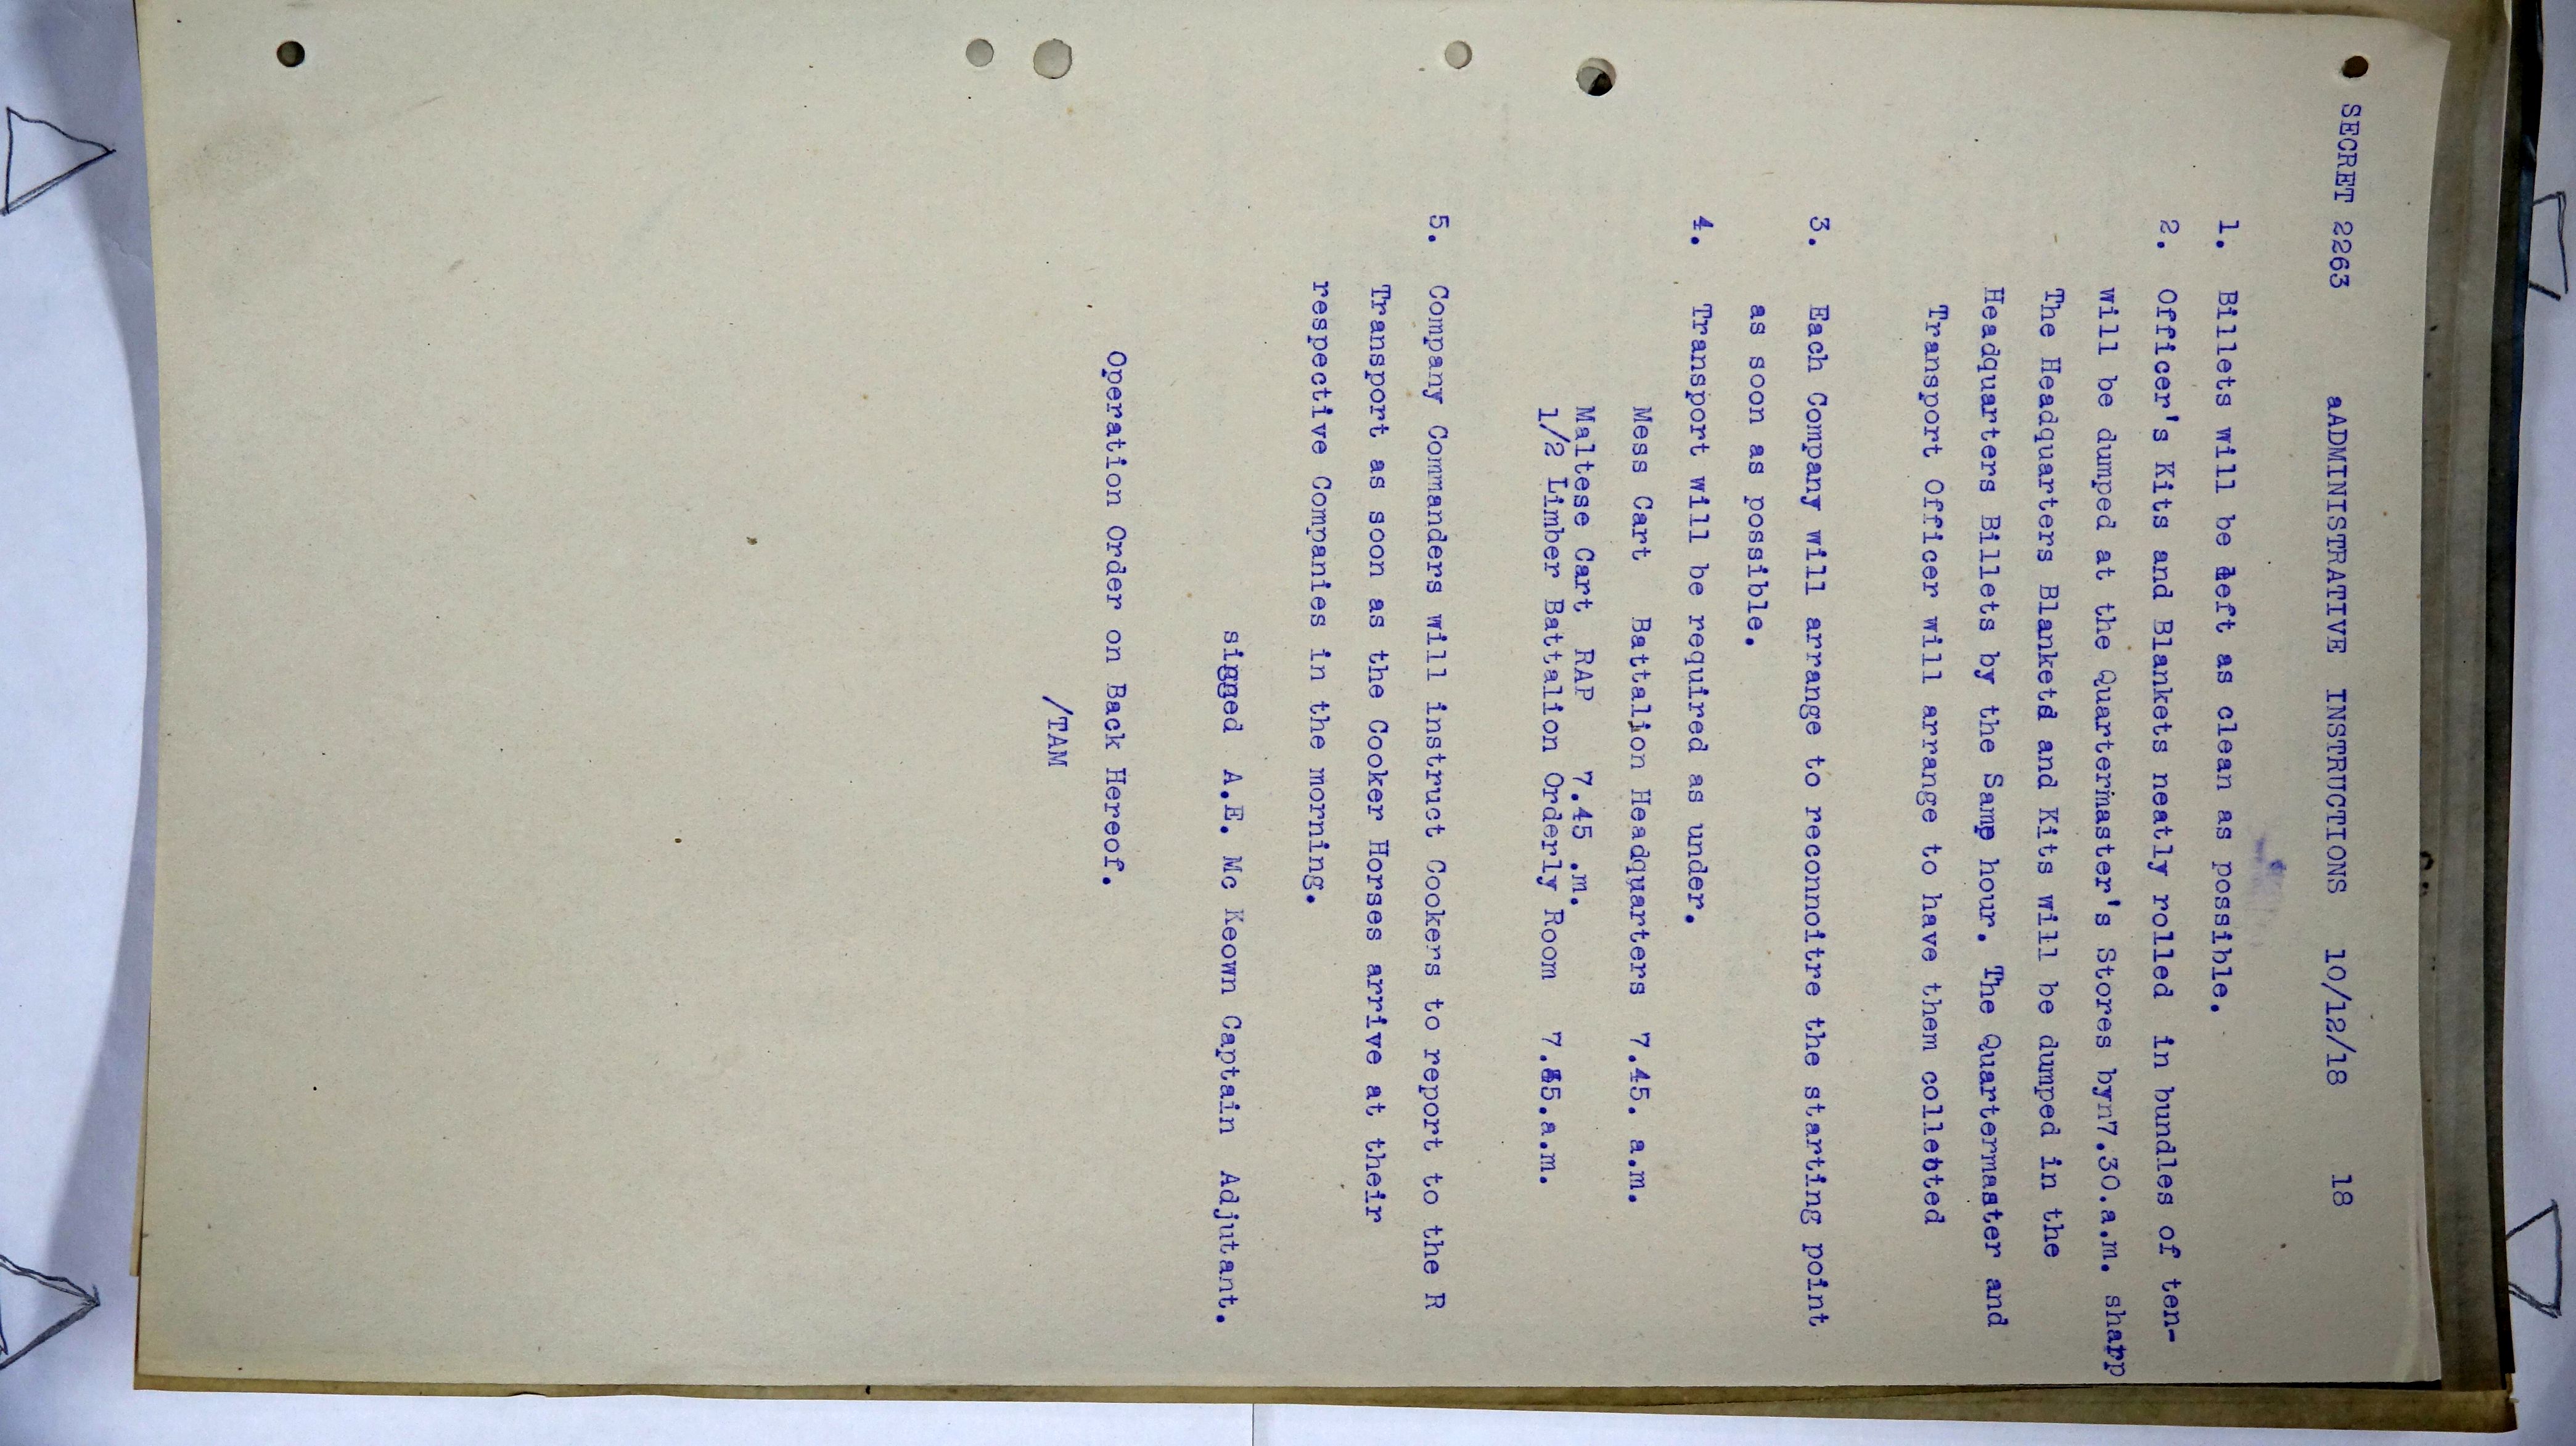 SECRET 2263 aADMINISTRATIVE INSTRUCTIONS 10/12/18 18
1. Billets will be left as clean as possible.
2. Officer's Kits and Blankets neatly rolled in bundles of ten-
will be dumped at the Quartermaster's Stores byn7.30.a.m. sharp
The Headquarters Blankets and Kits will be dumped in the
Headquarters Billets by the Same hour. The Quartermaster and
Transport Officer will arrange to have them collected
3. Each Company will arrange to reconnoitre the starting point
as soon as possible.
4. Transport will be required as under.
Mess Cart Battalion Headquarters 7.45. a.m.
Maltese Cart RAP 7.45 .m.
1/2 Limber Battalion Orderly Room 7.45.a.m.
5. Company Commanders will instruct Cookers to report to the R
Transport as soon as the Cooker Horses arrive at their
respective Companies in the morning.
signed A.E. Mc Keown Captain Adjutant.
Operation Order on Back Hereof.
/TAM